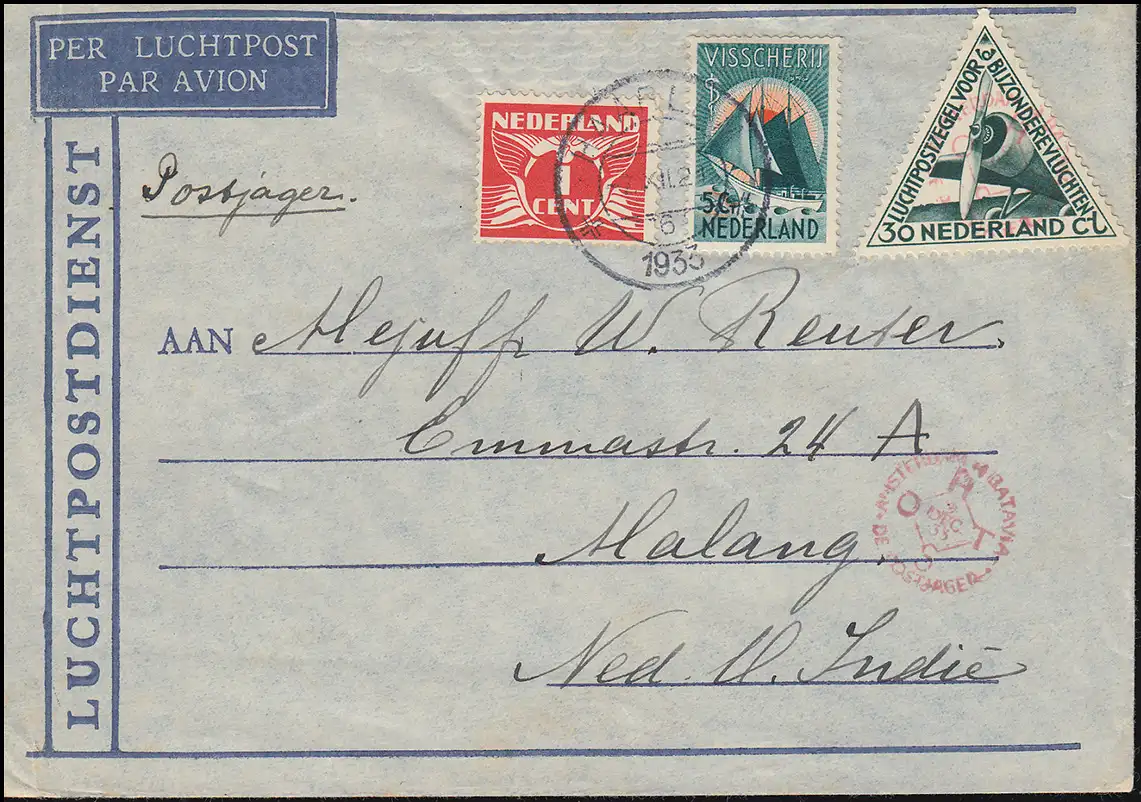 PER LUCHTPOST
PAR AVION
LUCHTPOSTDIENST
Postjager.
NEDERLAND
1
CENT
VISSCHERIJ
5 Ct.
NEDERLAND
LUCHTPOSTZEGEL VOOR BIJZONDERE VLUCHTEN
30 NEDERLAND CT
XII
6
1933
AAN Mejuffr W. Reuter.
Emmastr. 24 A
Malang.
Ned. O. Indië
AMSTERDAM BATAVIA
DE POSTJAGER
DEC
33
PORT